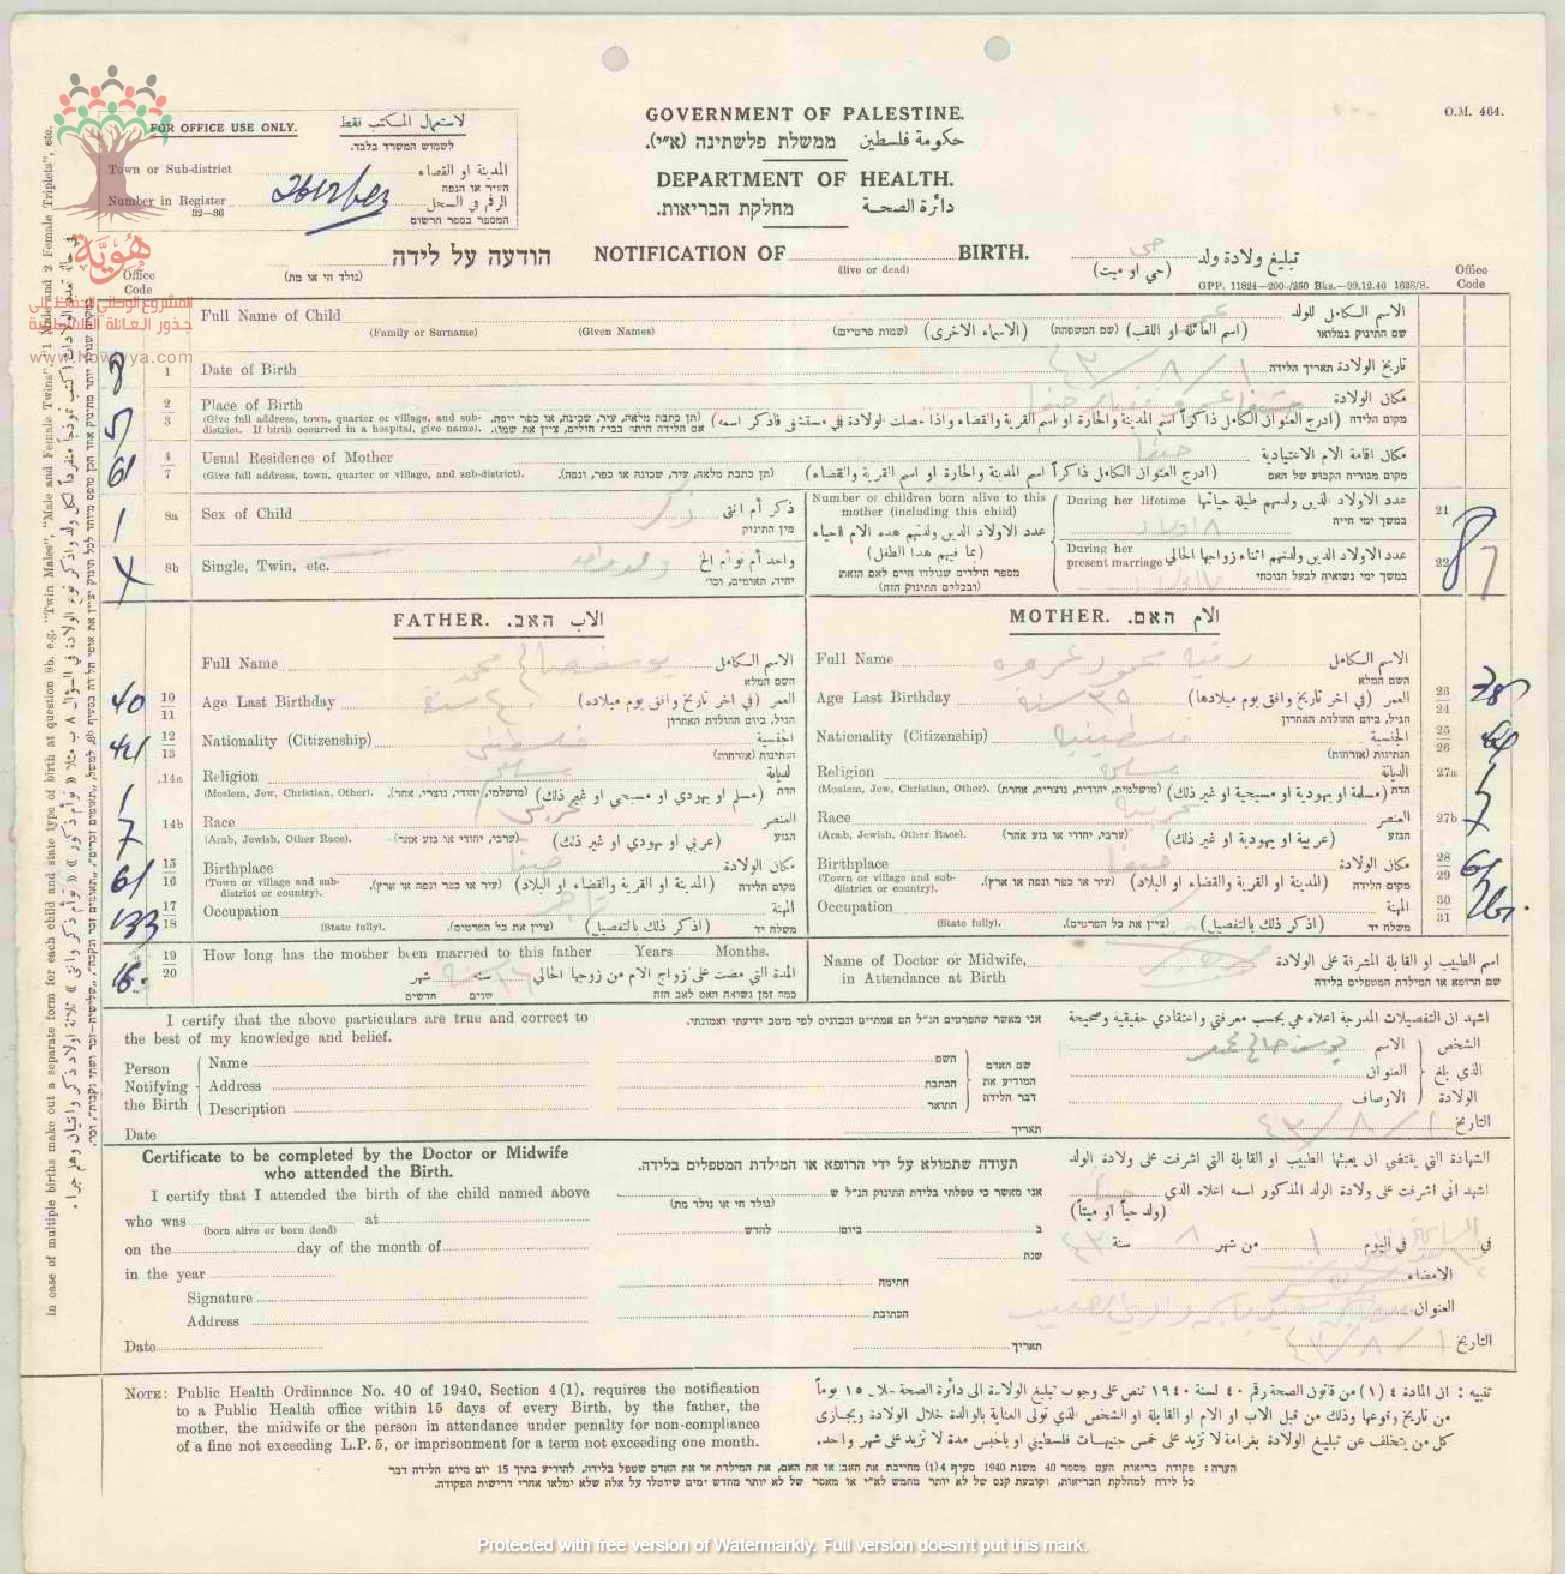 O.M. 464.
GOVERNMENT OF PALESTINE.
حكومة فلسطين ממשלת פלשתינה (א״י).
DEPARTMENT OF HEALTH.
دائرة الصحة מחלקת הבריאות.
FOR OFFICE USE ONLY. لاستعمال المكتب فقط
לשמוש המשרד בלבד.
Town or Sub-district المدينة او القضاء
העיר או הנפה
Number in Register الرقم في السجل
המספר בספר הרשום
32—36
הודעה על לידה NOTIFICATION OF BIRTH. تبليغ ولادة ولد حي
(נולד חי או מת) (alive or dead) (حي او ميت)
GPP. 11824—200/250 Bks.—29.12.40 1628/S.
Office Code
Office Code
هُوِيَّة
المشروع الوطني للحفاظ على
جذور العائلة الفلسطينية
www.howiyya.com
Full Name of Child الاسم الكامل للولد
(Family or Surname) (Given Names) (שמות פרטיים) (الاسماء الاخرى) (שם המשפחה) (اسم العائلة او اللقب) שם התינוק במלואו
8 1 Date of Birth ١ / ٨ / ٤٣ تاريخ الولادة תאריך הלידה
2 3 Place of Birth مكان الولادة
(Give full address, town, quarter or village, and sub-district. If birth occurred in a hospital, give name). (תן כתבת מלאה, עיר, שכונה, או כפר ונפה. אם הלידה היתה בבית חולים, ציין את שמו). (ادرج العنوان الكامل ذاكراً اسم المدينة والحارة او اسم القرية والقضاء واذا حصلت الولادة في مستشفى فاذكر اسمه) מקום הלידה
61 4 7 Usual Residence of Mother حيفا مكان اقامة الام الاعتيادية
(Give full address, town, quarter or village, and sub-district). (תן כתבת מלאה, עיר, שכונה או כפר, ונפה). (ادرج العنوان الكامل ذاكراً اسم المدينة والحارة او اسم القرية والقضاء) מקום מגוריה הקבוע של האם
1 8a Sex of Child ذكر ذكر أم انثى
מין התינוק
8b Single, Twin, etc. واحد أم توأم الخ
יחיד, תאומים, וכו׳
Number of children born alive to this mother (including this child)
عدد الاولاد الذين ولدتهم هذه الام احياء
(بما فيهم هذا الطفل)
מספר הילדים שנולדו חיים לאם הזאת
(ובכללם התינוק הזה)
During her lifetime عدد الاولاد الذين ولدتهم طيلة حياتها 21 8
במשך ימי חייה
٨ اولاد
During her present marriage عدد الاولاد الذين ولدتهم اثناء زواجها الحالي 22 7
במשך ימי נשואיה לבעל הנוכחי
FATHER. الاب האב.
MOTHER. الام האם.
Full Name يوسف صالح محمد الاسم الكامل
השם המלא
Full Name رقية محمود الاسم الكامل
השם המלא
40 10 11 Age Last Birthday ٤٠ سنة العمر (في اخر تاريخ وافق يوم ميلاده)
הגיל, ביום ההולדת האחרון
Age Last Birthday ٣٥ سنة العمر (في اخر تاريخ وافق يوم ميلادها) 23 24
הגיל, ביום ההולדת האחרון
12 13 Nationality (Citizenship) فلسطيني الجنسية
הנתינות (אזרחות)
Nationality (Citizenship) فلسطينية الجنسية 25 26
הנתינות (אזרחות)
14a Religion مسلم الديانة
(Moslem, Jew, Christian, Other). (מושלמי, יהודי, נוצרי, אחר). (مسلم او يهودي او مسيحي او غير ذلك) הדת
Religion مسلمة الديانة 27a
(Moslem, Jew, Christian, Other). (מושלמית, יהודית, נוצרית, אחרת) (مسلمة او يهودية او مسيحية او غير ذلك) הדת
14b Race عربي العنصر
(Arab, Jewish, Other Race). (ערבי, יהודי או גזע אחר). (عربي او يهودي او غير ذلك) הגזע
Race عربية العنصر 27b
(Arab, Jewish, Other Race). (ערבי, יהודי או גזע אחר) (عربية او يهودية او غير ذلك) הגזע
61 15 16 Birthplace حيفا مكان الولادة
(Town or village and sub-district or country). (עיר או כפר ונפה או ארץ). (المدينة او القرية والقضاء او البلاد) מקום הלידה
Birthplace حيفا مكان الولادة 28 29 61
(Town or village and sub-district or country). (עיר או כפר ונפה או ארץ). (المدينة او القرية والقضاء او البلاد) מקום הלידה
133 17 18 Occupation تاجر المهنة
(State fully). (ציין את כל הפרטים). (اذكر ذلك بالتفصيل) משלח יד
Occupation المهنة 30 31
(State fully). (ציין את כל הפרטים). (اذكر ذلك بالتفصيل) משלח יד
19 20 How long has the mother been married to this father Years Months.
المدة التي مضت على زواج الام من زوجها الحالي سنة شهر
כמה זמן נשואה האם לאב הזה שנים חדשים
Name of Doctor or Midwife, in Attendance at Birth اسم الطبيب او القابلة المشرفة على الولادة
שם הרופא או המילדת המטפלים בלידה
I certify that the above particulars are true and correct to the best of my knowledge and belief.
אני מאשר שהפרטים הנ״ל הם אמתיים ונכונים לפי מיטב ידיעתי ואמונתי.
اشهد ان التفصيلات المدرجة اعلاه هي بحسب معرفتي واعتقادي حقيقية وصحيحة
Person Notifying the Birth
Name
Address
Description
Date
שם האדם המודיע את דבר הלידה
השם
הכתבה
התואר
תאריך
الشخص الذي بلغ الولادة
الاسم يوسف صالح محمد
العنوان
الاوصاف
التاريخ ١ / ٨ / ٤٣
Certificate to be completed by the Doctor or Midwife who attended the Birth.
תעודה שתמולא על ידי הרופא או המילדת המטפלים בלידה.
الشهادة التي يقتضي ان يعبئها الطبيب او القابلة التي اشرفت على ولادة الولد
I certify that I attended the birth of the child named above
who was at
(born alive or born dead)
on the day of the month of
in the year
Signature
Address
Date
אני מאשר כי טפלתי בלידת התינוק הנ״ל ש
(נולד חי או נולד מת)
ב ביום לחדש
שנת
חתימה
הכתובת
תאריך
اشهد اني اشرفت على ولادة الولد المذكور اسمه اعلاه الذي
(ولد حياً او ميتاً)
في في اليوم ١ من شهر ٨ سنة ٤٣
الامضاء
العنوان
التاريخ ١ / ٨ / ٤٣
NOTE: Public Health Ordinance No. 40 of 1940, Section 4(1), requires the notification
to a Public Health office within 15 days of every Birth, by the father, the
mother, the midwife or the person in attendance under penalty for non-compliance
of a fine not exceeding L.P. 5, or imprisonment for a term not exceeding one month.
تنبيه : ان المادة ٤ (١) من قانون الصحة رقم ٤٠ لسنة ١٩٤٠ تنص على وجوب تبليغ الولادة الى دائرة الصحة خلال ١٥ يوماً
من تاريخ وقوعها وذلك من قبل الاب او الام او القابلة او الشخص الذي تولى العناية بالوالدة خلال الولادة ويجازى
كل من يتخلف عن تبليغ الولادة بغرامة لا تزيد على خمس جنيهات فلسطيني او بالحبس مدة لا تزيد على شهر واحد.
הערה: פקודת בריאות העם מספר 40 משנת 1940 סעיף 4(1) מחייבת את האב או את האם, את המילדת או את האדם שטפל בלידה, להודיע בתוך 15 יום מיום הלידה דבר
כל לידה למחלקת הבריאות, וקובעת קנס של לא יותר מחמש לא״י או מאסר של לא יותר מחדש ימים שיוטלו על אלה שלא ימלאו אחרי דרישות הפקודה.
In case of multiple births make out a separate form for each child and state type of birth at question 8b. e.g. "Twin Males", "Male and Female Twins", "1 Male and 2 Female Triplets", etc.
Protected with free version of Watermarkly. Full version doesn't put this mark.